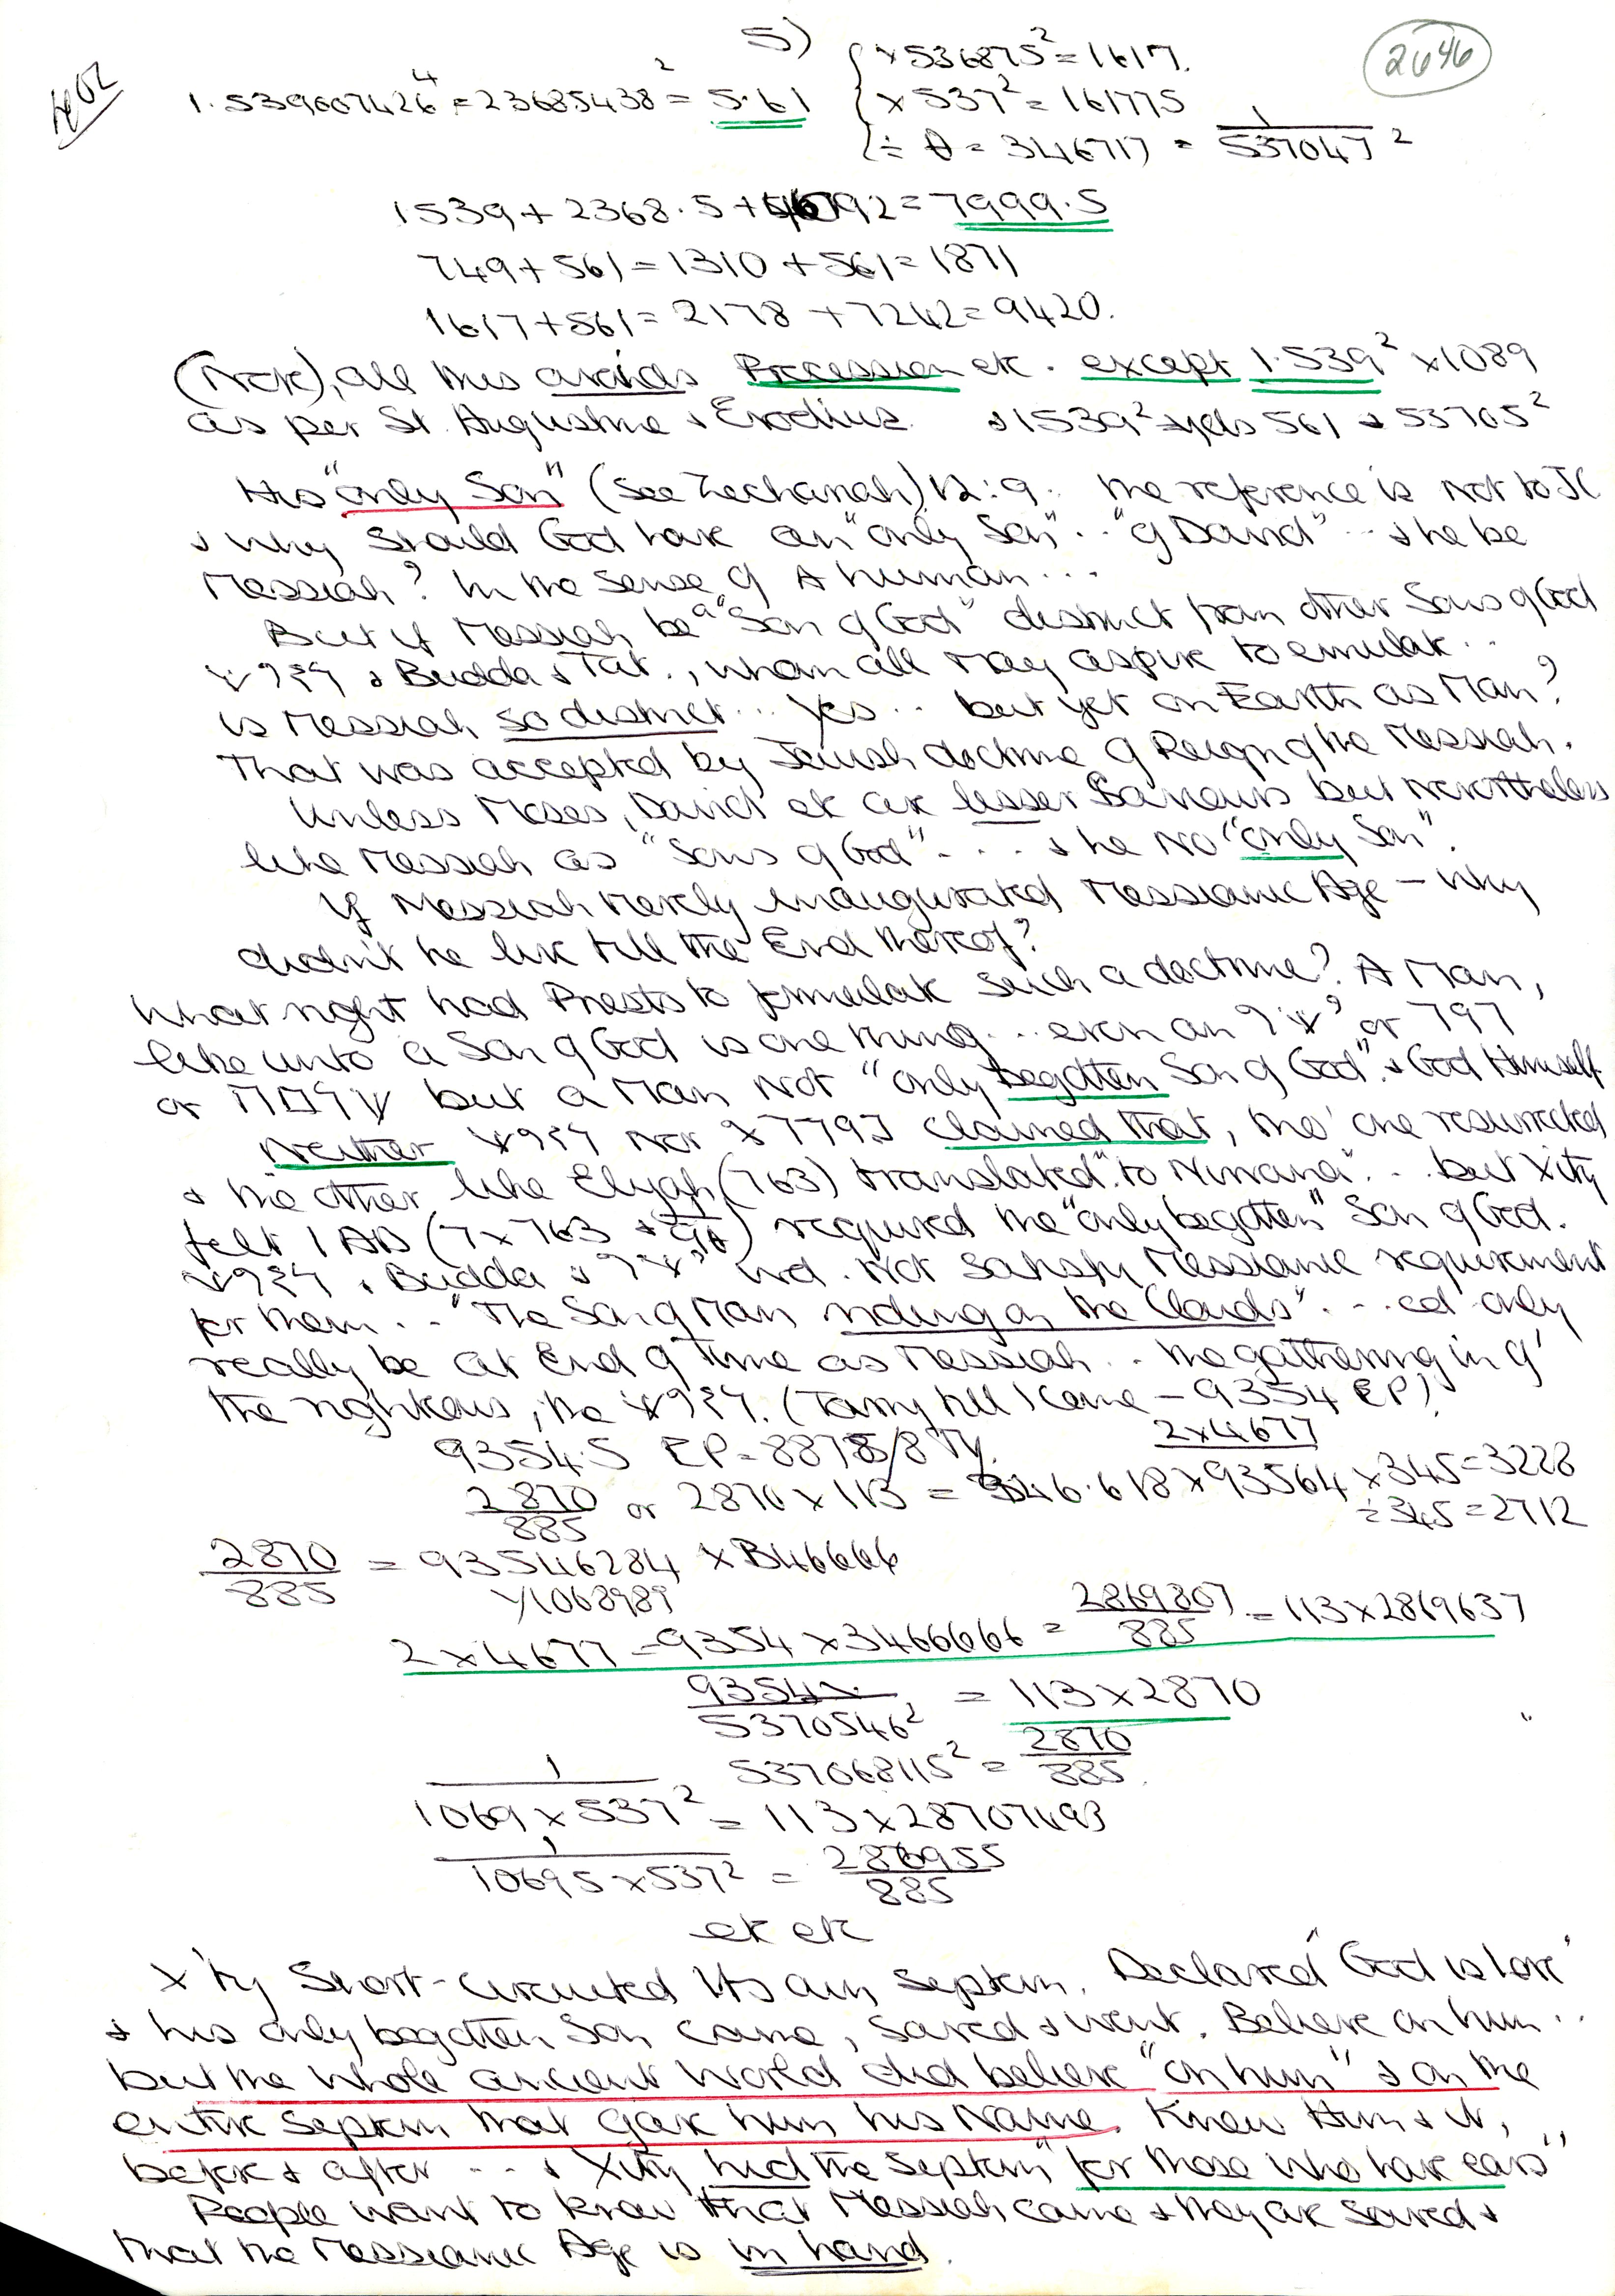 5)
2646
1.539607426⁴ = 23685438² = 5.61
{ × 536875² = 1617.
× 537² = 161775
÷ θ = 346717 = 1/537047²
1539 + 2368.5 + 4092 = 7999.5
749 + 561 = 1310 + 561 = 1871
1617 + 561 = 2178 + 7242 = 9420.
(Note), all this avoids Precession etc. except 1.539² × 1089
as per St. Augustine & Evodius. & 1539² yields 561 & 53705²
His "only Son" (see Zechariah) 12:9. The reference is not to JC
& why should God have an "only Son".. "of David" .. & he be
Messiah? In the sense of A human...
But if Messiah be a "Son of God" distinct from other Sons of God
& Budda & Tat., whom all may aspire to emulate..
is Messiah so distinct.. Yes.. but yet on Earth as Man?
That was accepted by Jewish doctrine of Reign of the Messiah.
Unless Moses, David etc are lesser Saviours but nevertheless
like Messiah as "Sons of God".... & he no "only Son".
If Messiah merely inaugurated Messianic Age – why
didn't he live till the End thereof?
What right had Priests to formulate such a doctrine? A Man,
like unto a Son of God is one thing... even an or
or but a Man not "only begotten Son of God". & God Himself
Neither nor claimed that, tho' one resurrected
& the other like Elijah (763) translated "to Nirvana".. but Xity
felt 1 AD (7 × 763 ) required the "only begotten" Son of God.
& Budda & wd. not satisfy Messianic requirement
for them.. "The Son of Man riding on the Clouds"... cd only
really be at End of Time as Messiah.. the gathering in of
the righteous, the (Tarry till I come – 9354 EP).
2×4677
9354.5 EP = 8878
2870/885 or 2870 × 113 = 346.618 × 93564 × 345 = 3228
÷ 345 = 2712
2870/885 = 93546284 × 346666
× 1068989
2 × 4677 = 9354 × 3466666 = 2869807/885 = 113 × 2869637
9354/5370546² = 113 × 2870
537068115² = 2870/885
1/1069 × 537² = 113 × 28707493
1/10695 × 537² = 286955/885
etc etc
X'ty short-circuited its own . Declared "God is love"
& his only begotten Son came, saved & went. Believe on him..
but the whole ancient world did believe "on him" & on the
entire that gave him his Name. Knew Him & it,
before & after ... & Xity hid the "for those who have ears"
People want to know that Messiah came & they are saved &
that the Messianic Age is in hand.